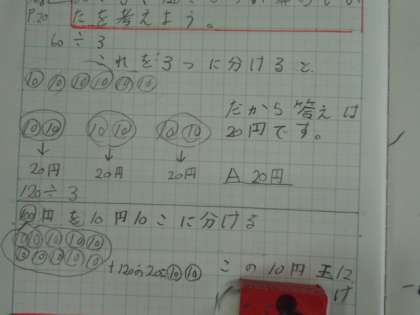 P20 たを考えよう。
60÷3
これを3つに分けると、
⑩ ⑩ ⑩ ⑩ ⑩ ⑩
⑩⑩ ⑩⑩ ⑩⑩
↓ ↓ ↓
20円 20円 20円
だから答えは
20円です。
A 20円
120÷3
100円を10円10こに分ける
⑩⑩⑩⑩⑩
⑩⑩⑩⑩⑩
+120の20こ⑩⑩ この10円玉12
け